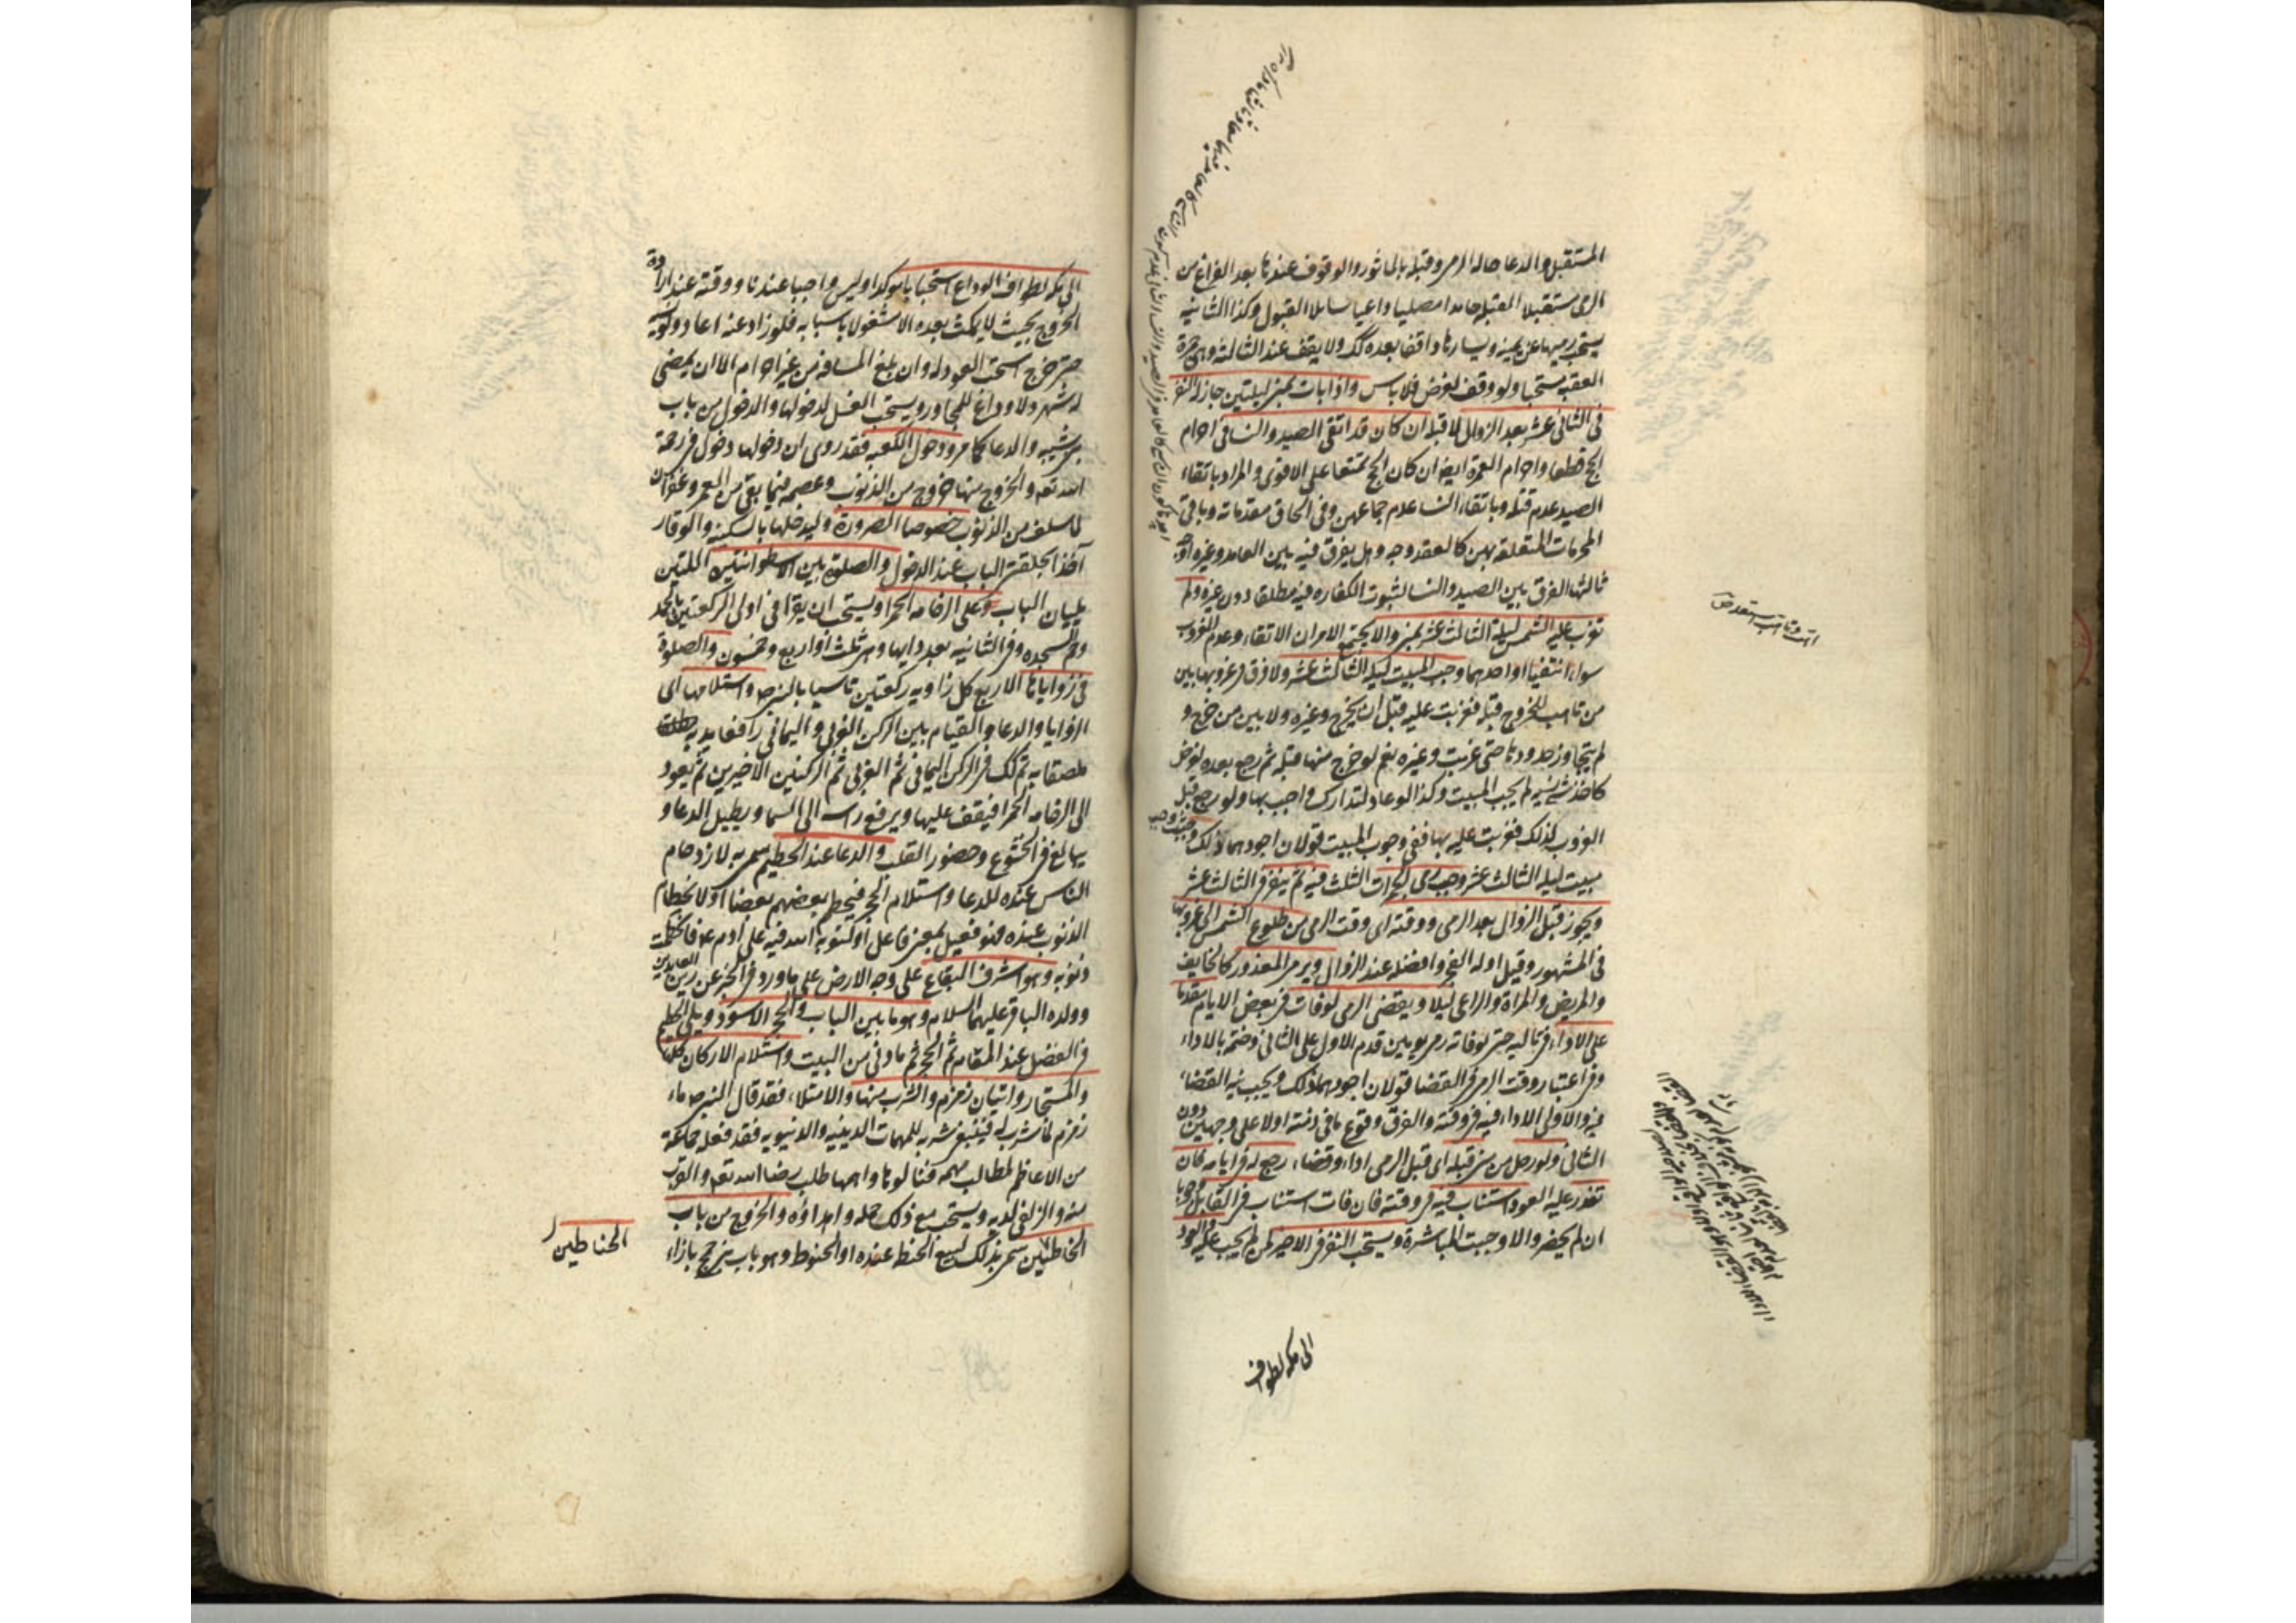 المستقبل والدعا حاله الرمي وقبله بالماثور والوقوف عندها بعد الفراغ من
الرمي مستقبلا القبله حامدا مصليا داعيا سايلا القبول وكذا الثانيه
يستحب رميها عن يمينه ويسارها واقفا بعده كك ولا يقف عند الثالثه وهي جمرة
العقبه مستحبا ولو وقف لغرض فلا باس واذا بات بمنى ليلتين جاز له النفر
في الثاني عشر بعد الزوال لا قبله ان كان قد اتقى الصيد والنسا في احرام
الحج قطعا واحرام العمرة ايضا ان كان الحج تمتعا على الاقوى والمراد باتقاء
الصيد عدم قتله وباتقاء النسا عدم جماعهن وفي الحاق مقدماته وباقي
المحرمات المتعلقة بهن كالعقد وجه وهل يفرق فيه بين العامد وغيره اوجه
ثالثها الفرق بين الصيد والنسا لثبوت الكفاره فيه مطلقا دون غيره ولم
تغرب عليه الشمس ليلة الثالث عشر بمنى والا يجتمع الامران الاتقاء وعدم الغروب
سواء انتفيا او احدهما وجب المبيت ليلة الثالث عشر ولا فرق في غروبها بين
من تاهب للخروج قبله فغربت عليه قبل ان يخرج وغيره ولا بين من خرج و
لم يتجاوز حدودها حتى غربت وغيره نعم لو خرج منها قبله ثم رجع بعده لغرض
كاخذ شي نسيه لم يجب المبيت وكذا لو عاد لتدارك واجب بها ولو رجع قبل
الغروب لذلك فغربت عليه بها ففي وجوب المبيت قولان اجودهما ذلك وحيث وجب
مبيت ليلة الثالث عشر وجب رمي الجمرات الثلث فيه ثم ينفر في الثالث عشر
ويجوز قبل الزوال بعد الرمي ووقته اي وقت الرمي من طلوع الشمس الى غروبها
في المشهور وقيل اوله الفجر وافضله عند الزوال ويرمي المعذور كالخايف
والمريض والمراة والراعي ليلا ويقضى الرمي لو فات في بعض الايام مقدما
على الاداء في تاليه حتى لو فاته رمي يومين قدم الاول على الثاني وختم بالاداء
وفي اعتبار وقت الرمي في القضا قولان اجودهما ذلك ويجب نية القضاء
فيه والاولى الاداء فيه في وقته والفرق وقوع ما في ذمته اولا على وجهين دون
الثاني ولو رحل من منى قبله اي قبل الرمي اداء وقضاء رجع له في ايامه فان
تعذر عليه العود استناب فيه في وقته فان فات استناب في القابل وجوبا
ان لم يحضر والا وجبت المباشرة ويستحب النفر في الاخير لمن لم يجب عليه والعود
الى مكه لطواف
الى مكه لطواف الوداع استحبابا موكدا وليس واجبا عندنا ووقته عند ارادة
الخروج بحيث لا يمكث بعده الا مشغولا باسبابه فلو زاد عنه اعاد ولو نسيه
حتى خرج استحب العود له وان بلغ المسافة من غير احرام الا ان يمضي
له شهر ولا وداع للمجاور ويستحب الغسل لدخولها والدخول من باب
بني شيبه والدعا كما مر ودخول الكعبه فقد روى ان دخولها دخول في رحمة
الله تعه والخروج منها خروج من الذنوب وعصمه فيما بقي من العمر وغفران
لما سلف من الذنوب خصوصا الصرورة وليدخلها بالسكينه والوقار
آخذا بحلقتي الباب عند الدخول والصلوة بين الاسطوانتين اللتين
يليان الباب وعلى الرخامه الحمرا ويستحب ان يقرا في اولى الركعتين بالحمد
وحم السجده وفي الثانيه بعدد ايها وهي ثلث او اربع وخمسون والصلوة
في زواياها الاربع كل زاويه ركعتين تاسيا بالنبي ص واستلامها اى
الزوايا والدعا والقيام بين الركن الغربي و اليماني رافعا يديه
ملصقا به ثم كك في الركن اليماني ثم الغربي ثم الركنين الاخيرين ثم يعود
الى الرخامه الحمرا فيقف عليها ويرفع راسه الى السما ويطيل الدعا و
يبالغ في الخشوع وحضور القلب والدعا عند الحطيم سمى به لازدحام
الناس عنده للدعا واستلام الحجر فيحطم بعضهم بعضا او لانحطام
الذنوب عنده فهو فعيل بمعنى فاعل او لتوبة الله فيه على ادم ع فانحطمت
ذنوبه وهو اشرف البقاع على وجه الارض على ما ورد في الخبر عن زين العابدين
وولده الباقر عليهما السلام وهو ما بين الباب والحجر الاسود ويلي الحطيم
في الفضل عند المقام ثم الحجر ثم ما دنى من البيت واستلام الاركان كلها
والمستجار واتيان زمزم والشرب منها والامتلاء فقد قال النبي ص ماء
زمزم لما شرب له فينبغي شربه للمهمات الدينيه والدنيويه فقد فعله جماعة
من الاعاظم لمطالب مهمه فنالوها واهمها طلب رضا الله تعه والقرب
منه والزلفى لديه ويستحب مع ذلك حمله واهداؤه والخروج من باب
الحناطين سمى بذلك لبيع الحنطه عنده او الحنوط وهو باب بني جمح بازاء
الحناطين